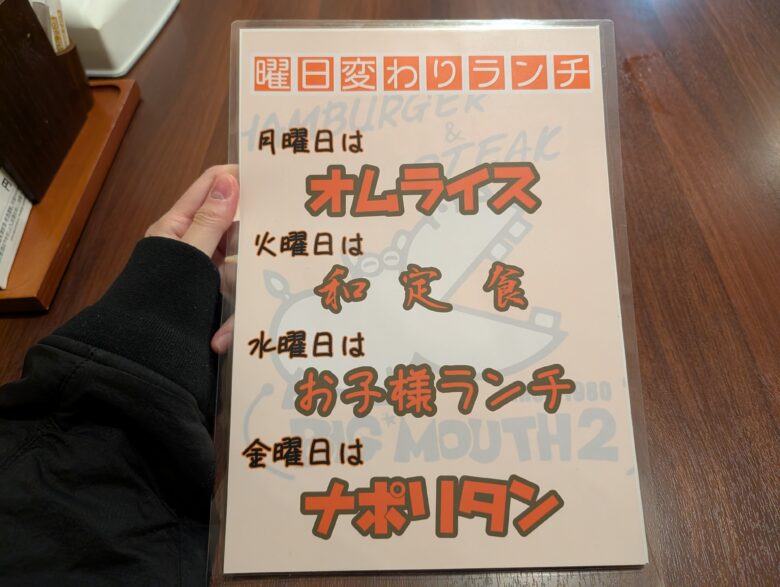 曜日変わりランチ
HAMBURGER
&
STEAK
月曜日は
オムライス
火曜日は
和定食
水曜日は
お子様ランチ
1980
BIG MOUTH 2
金曜日は
ナポリタン
円